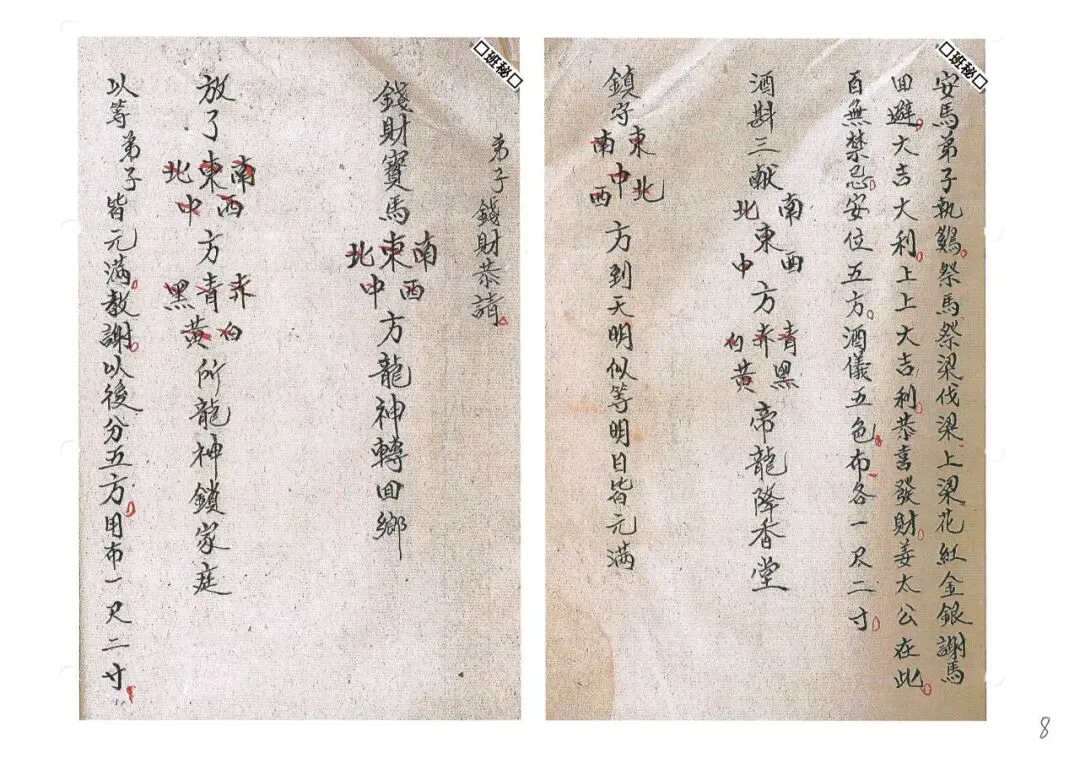 安馬弟子執鷄祭馬祭梁伐梁上梁花紅金銀謝馬
回避大吉大利上上大吉利恭喜發財姜太公在此
百無禁忌安位五方酒儀五色布各一尺二寸
酒斟三献
南西東北中
方
青黑赤白黃
帝龍降香堂
鎮守
東北中南西
方到天明似等明日皆元满
弟子錢財恭請
錢財寶馬
南西東中北
方龍神轉回鄉
放了
南西東中北
方
赤白青黃黑
所龍神鎖家庭
以等弟子皆元满教謝以後分五方用布一尺二寸
□班秘□
□班秘□
8